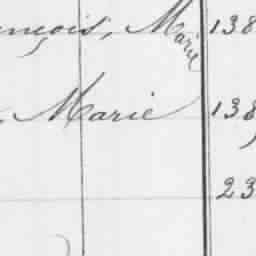 ançois, Marie 138
, Marie 138
23